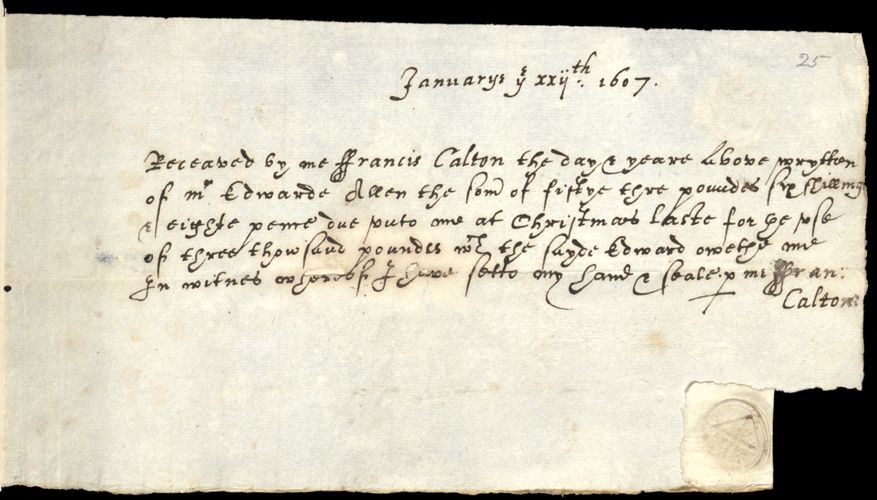 25
Januarye ye xxijth. 1607.
Receaved by me ffrancis Calton the day & yeare above wrytten
of mr Edwarde Allen the som of fiftye thre poundes six shillings
& eighte pence due vnto me at Christmas laste for ye vse
of three thowsand poundes wch the sayde Edward owethe me
In witnes whereof I have setto my hand & seale. p me ffran:
Calton